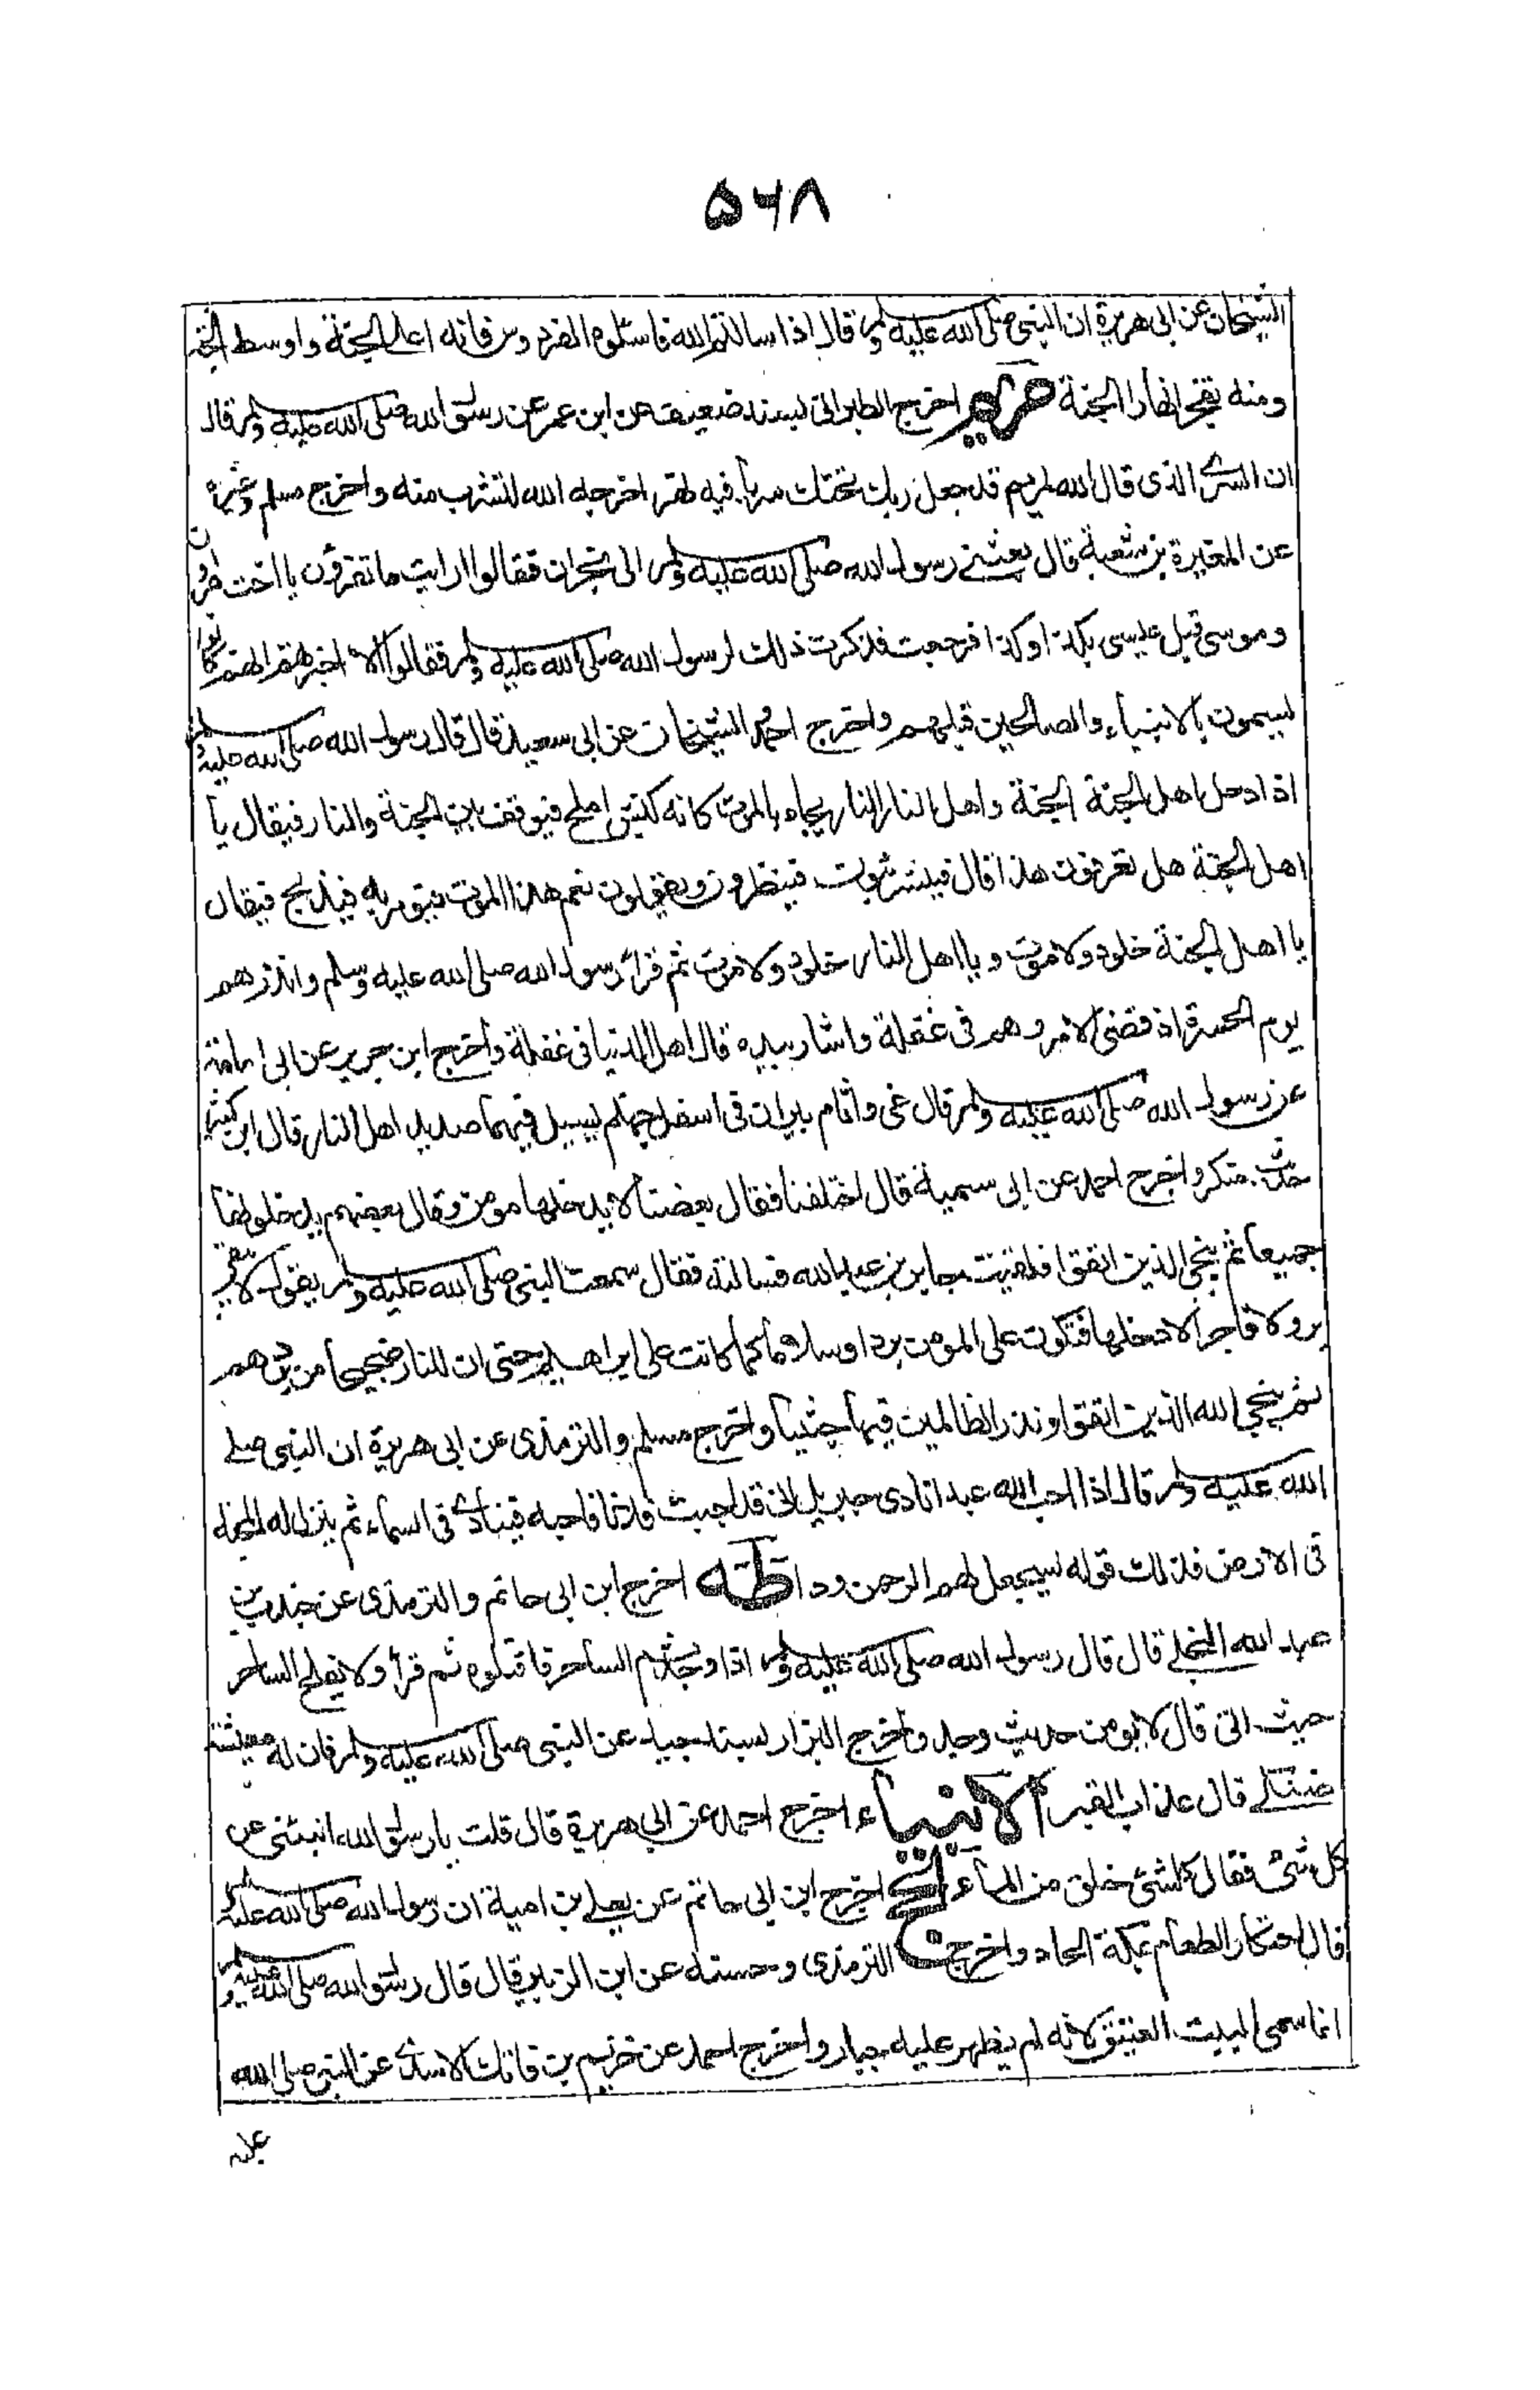 ۵۶۸
الشيخان عن ابى هريرة ان النبى صلى الله عليه وسلم قال اذا سالتم الله فاسئلوه الفردوس فانه اعلى الجنة واوسط الجنة
ومنه تفجر انهار الجنة مريم اخرج الطبرانى بسند ضعيف عن ابن عمر عن رسول الله صلى الله عليه وسلم قال
ان السرى الذى قال الله لمريم قد جعل ربك تحتك سريا فيه نهر اخرجه الله لتشرب منه واخرج مسلم وغيره
عن المغيرة بن شعبة قال بعثنى رسول الله صلى الله عليه وسلم الى نجران فقالوا ارايت ما تقرؤن يا اخت هرون
وموسى قبل عيسى بكذا وكذا فرجعت فذكرت ذلك لرسول الله صلى الله عليه وسلم فقالوا الا اخبرهم انهم كانوا
يسمون بالانبياء والصالحين قبلهم واخرج احمد والشيخان عن ابى سعيد قال قال رسول الله صلى الله عليه وسلم
اذا دخل اهل الجنة الجنة واهل النار النار يجاء بالموت كانه كبش املح فيوقف بين الجنة والنار فيقال يا
اهل الجنة هل تعرفون هذا قال فيشرئبون فينظرون ويقولون نعم هذا الموت فيومر به فيذبح فيقال
يا اهل الجنة خلود ولا موت ويا اهل النار خلود ولا موت ثم قرأ رسول الله صلى الله عليه وسلم وانذرهم
يوم الحسرة اذ قضى الامر وهم فى غفلة واشار بيده قال اهل الدنيا فى غفلة واخرج ابن جرير عن ابى امامة
عن رسول الله صلى الله عليه وسلم قال غى واثام بيران فى اسفل جهنم يسيل فيهما صديد اهل النار قال ابن كثير
حديث منكر واخرج احمد عن ابى سمية قال اختلفنا فقال بعضنا لا يدخلها مومن وقال بعضهم يدخلونها
جميعا ثم ينجى الذين اتقوا فلقيت جابر بن عبد الله فسالته فقال سمعت النبى صلى الله عليه وسلم يقول لا يبقى
بر ولا فاجر الا دخلها فتكون على المومن بردا وسلاما كما كانت على ابراهيم حتى ان للنار ضجيجا من بردهم
ثم ينجى الله الذين اتقوا ونذر الظالمين فيها جثيا واخرج مسلم والترمذى عن ابى هريرة ان النبى صلى
الله عليه وسلم قال اذا احب الله عبدا نادى جبريل انى قد احببت فلانا فاحبه فينادى فى السماء ثم ينزل له المحبة
فى الارض فذلك قوله سيجعل لهم الرحمن ودا طه اخرج ابن ابى حاتم والترمذى عن جندب بن
عبد الله البجلى قال قال رسول الله صلى الله عليه وسلم اذا وجدتم الساحر فاقتلوه ثم قرأ ولا يفلح الساحر
حيث اتى قال لا يومن حديث وجد واخرج البزار بسند جيد عن النبى صلى الله عليه وسلم فان له معيشة
ضنكا قال عذاب القبر الانبياء اخرج احمد عن ابى هريرة قال قلت يا رسول الله انبئنى عن
كل شئ فقال كل شئ خلق من الماء الحج اخرج ابن ابى حاتم عن يعلى بن امية ان رسول الله صلى الله عليه وسلم
قال احتكار الطعام بمكة الحاد واخرج الترمذى وحسنه عن ابن الزبير قال قال رسول الله صلى الله عليه وسلم
انما سمى البيت العتيق لانه لم يظهر عليه جبار واخرج احمد عن خريم بن فاتك الاسدى عن النبى صلى الله
عليه